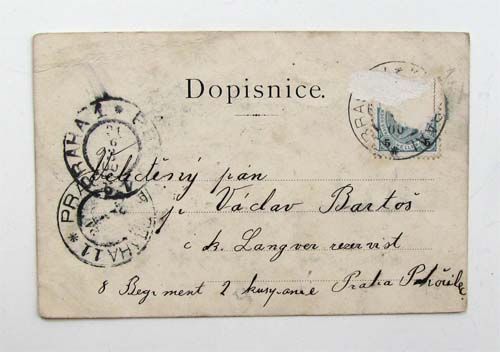 Dopisnice.
PRAHA 1
PRAHA 11
pán
p. Václav Bartoš
c. k. Langver rezervist
8 Regiment 2 kumpanie Praha Pohořelec